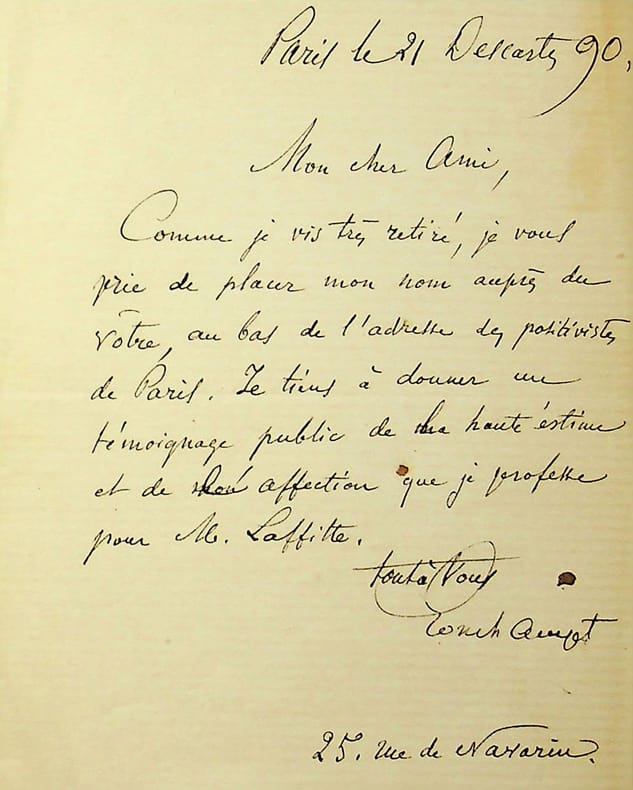 Paris le 21 Descartes 90.
Mon cher Ami,
Comme je vis très retiré, je vous
prie de placer mon nom auprès du
vôtre, au bas de l'adresse des positivistes
de Paris. Je tiens à donner un
témoignage public de la haute éstime
et de affection que je professe
pour M. Laffitte.
tout à Vous
25. rue de Navarin.